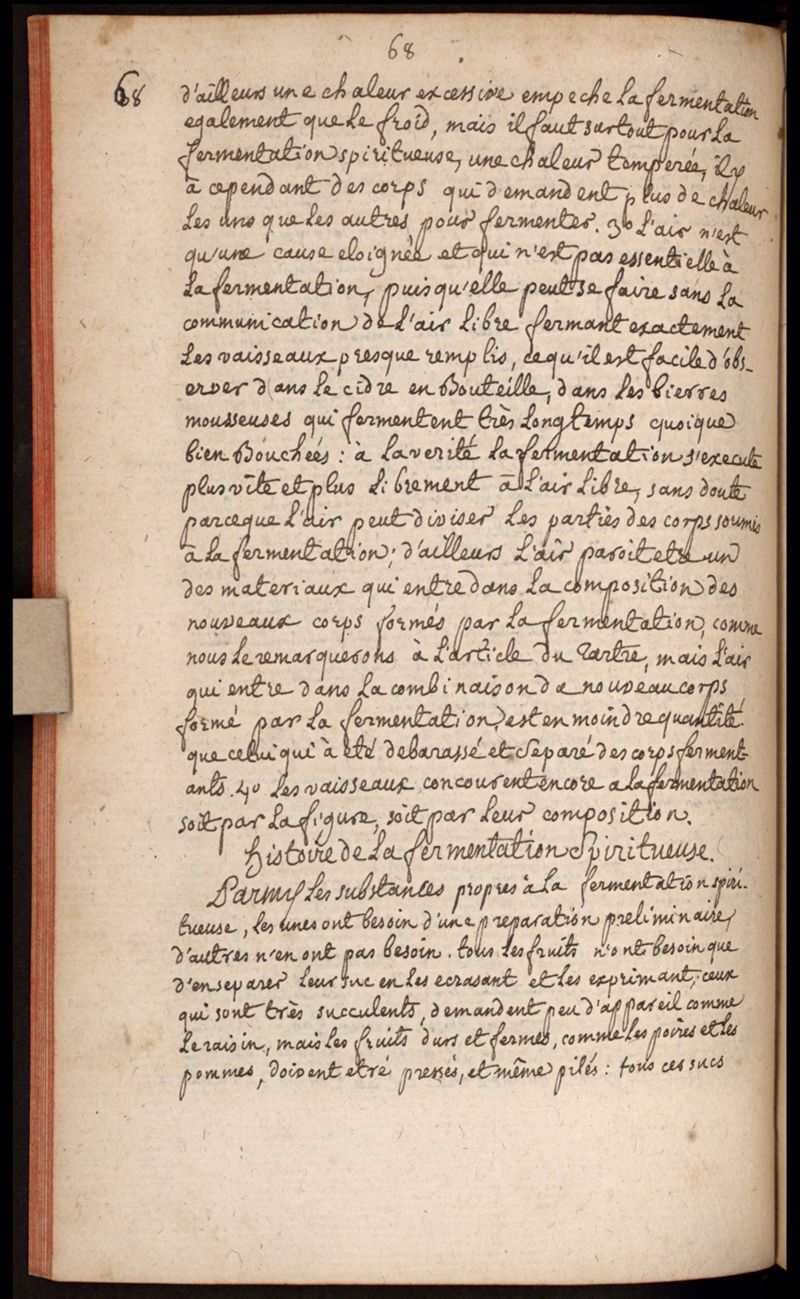 68
68
d'ailleurs une chaleur excessive empeche la fermentation
egalement que le froid, mais il faut surtout pour la
fermentation spiritueuse, une chaleur temperée, il y
à cependant des corps qui demandent plus de chaleur
les uns que les autres pour fermenter. 3º l'air n'est
qu'une cause eloignée et qui n'est pas essentielle à
la fermentation, puisqu'elle peut se faire sans la
communication de l'air libre fermant exactement
les vaisseaux presque remplis, ce qu'il est facile d'obs-
erver dans le cidre en Bouteille, dans les bierres
mousseuses qui fermentent très longtemps quoique
bien Bouchées : à la verité la fermentation s'execute
plus vîte et plus librement à l'air libre, sans doute
parceque l'air peut diviser les parties des corps soumis
à la fermentation; d'ailleurs l'air paroit etre un
des materiaux qui entre dans la composition des
nouveaux corps formés par la fermentation, comme
nous le remarquerons à l'article du Tartre, mais l'air
qui entre dans la combinaison da nouveau corps
formé par la fermentation, est en moindre quantité
que celui qui à eté debarassé et separé des corps ferment-
ants. 4º les vaisseaux concourent encore a la fermentation
soit par la figure, soit par leur composition.
histoire de la fermentation Spiritueuse.
Parmy les substances propres à la fermentation spiri-
tueuse, les unes ont besoin d'une preparation preliminaire,
d'autres n'en ont pas besoin. tous les fruits n'ont besoin que
d'en separer leur suc en les ecrasant et les exprimant, ceux
qui sont très succulents, demandent peu d'appareil comme
le raisin, mais les fruits durs et fermes, comme les poires et les
pommes, doivent etre pressés, et même pilés : tous ces sucs